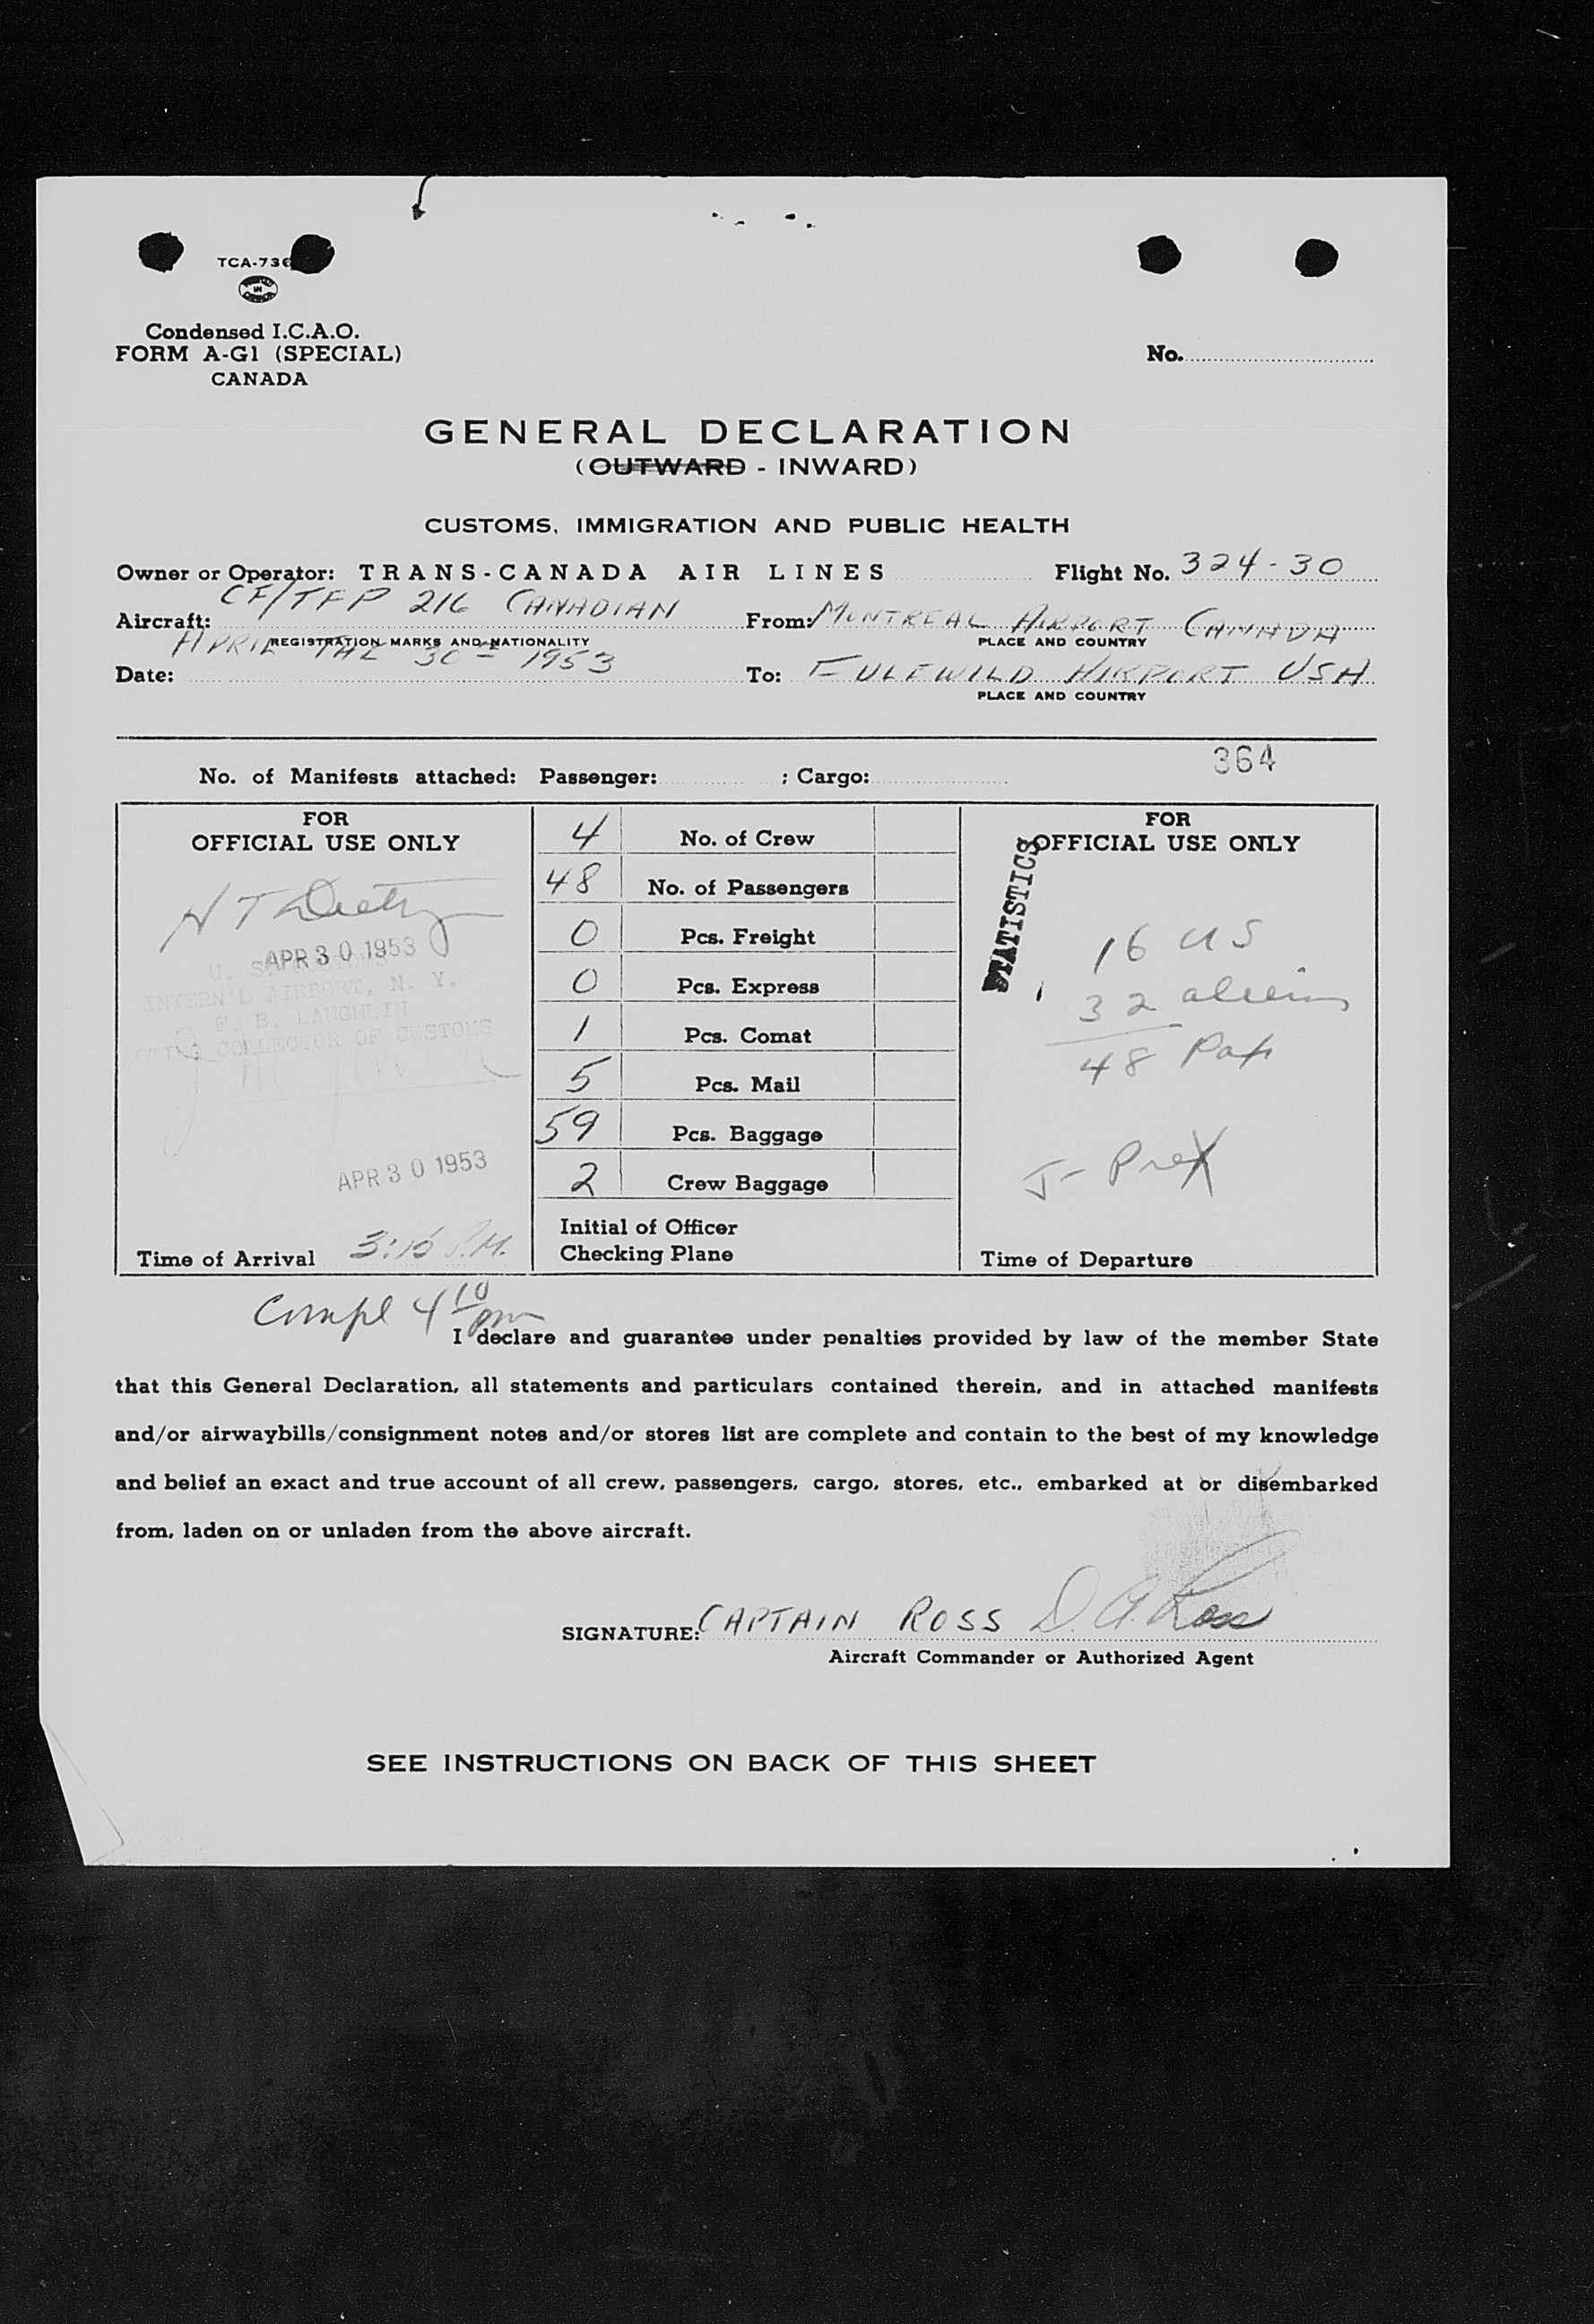 TCA-736
Condensed I.C.A.O.
FORM A-G1 (SPECIAL)
CANADA
No.
GENERAL DECLARATION
(OUTWARD - INWARD)
CUSTOMS, IMMIGRATION AND PUBLIC HEALTH
Owner or Operator: TRANS-CANADA AIR LINES Flight No. 324-30
Aircraft: CF/TFP 216 CANADIAN From: MONTREAL AIRPORT CANADA
REGISTRATION MARKS AND NATIONALITY PLACE AND COUNTRY
Date: APRIL THE 30 1953 To: AIRPORT USA
PLACE AND COUNTRY
364
No. of Manifests attached: Passenger: ; Cargo:
FOR
OFFICIAL USE ONLY
APR 30 1953
INTERN'L AIRPORT, N. Y.
F. B. LAUGHLIN
ACTING COLLECTOR OF CUSTOMS
APR 30 1953
Time of Arrival 3:15 P.M.
4 No. of Crew
48 No. of Passengers
0 Pcs. Freight
0 Pcs. Express
1 Pcs. Comat
5 Pcs. Mail
59 Pcs. Baggage
2 Crew Baggage
Initial of Officer
Checking Plane
FOR
OFFICIAL USE ONLY
STATISTICS
16 US
32 aliens
48 Pax
Time of Departure
Compl 4 10 pm
I declare and guarantee under penalties provided by law of the member State
that this General Declaration, all statements and particulars contained therein, and in attached manifests
and/or airwaybills/consignment notes and/or stores list are complete and contain to the best of my knowledge
and belief an exact and true account of all crew, passengers, cargo, stores, etc., embarked at or disembarked
from, laden on or unladen from the above aircraft.
SIGNATURE: CAPTAIN ROSS D. A. Ross
Aircraft Commander or Authorized Agent
SEE INSTRUCTIONS ON BACK OF THIS SHEET